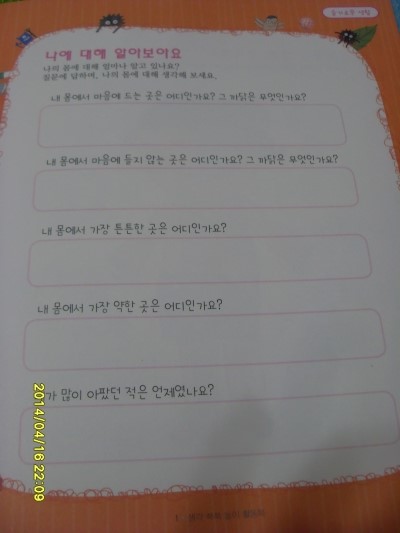 나에 대해 알아보아요
나의 몸에 대해 얼마나 알고 있나요?
질문에 답하며, 나의 몸에 대해 생각해 보세요.
내 몸에서 마음에 드는 곳은 어디인가요? 그 까닭은 무엇인가요?
내 몸에서 마음에 들지 않는 곳은 어디인가요? 그 까닭은 무엇인가요?
내 몸에서 가장 튼튼한 곳은 어디인가요?
내 몸에서 가장 약한 곳은 어디인가요?
가 많이 아팠던 적은 언제였나요?
2014/04/16 22:09